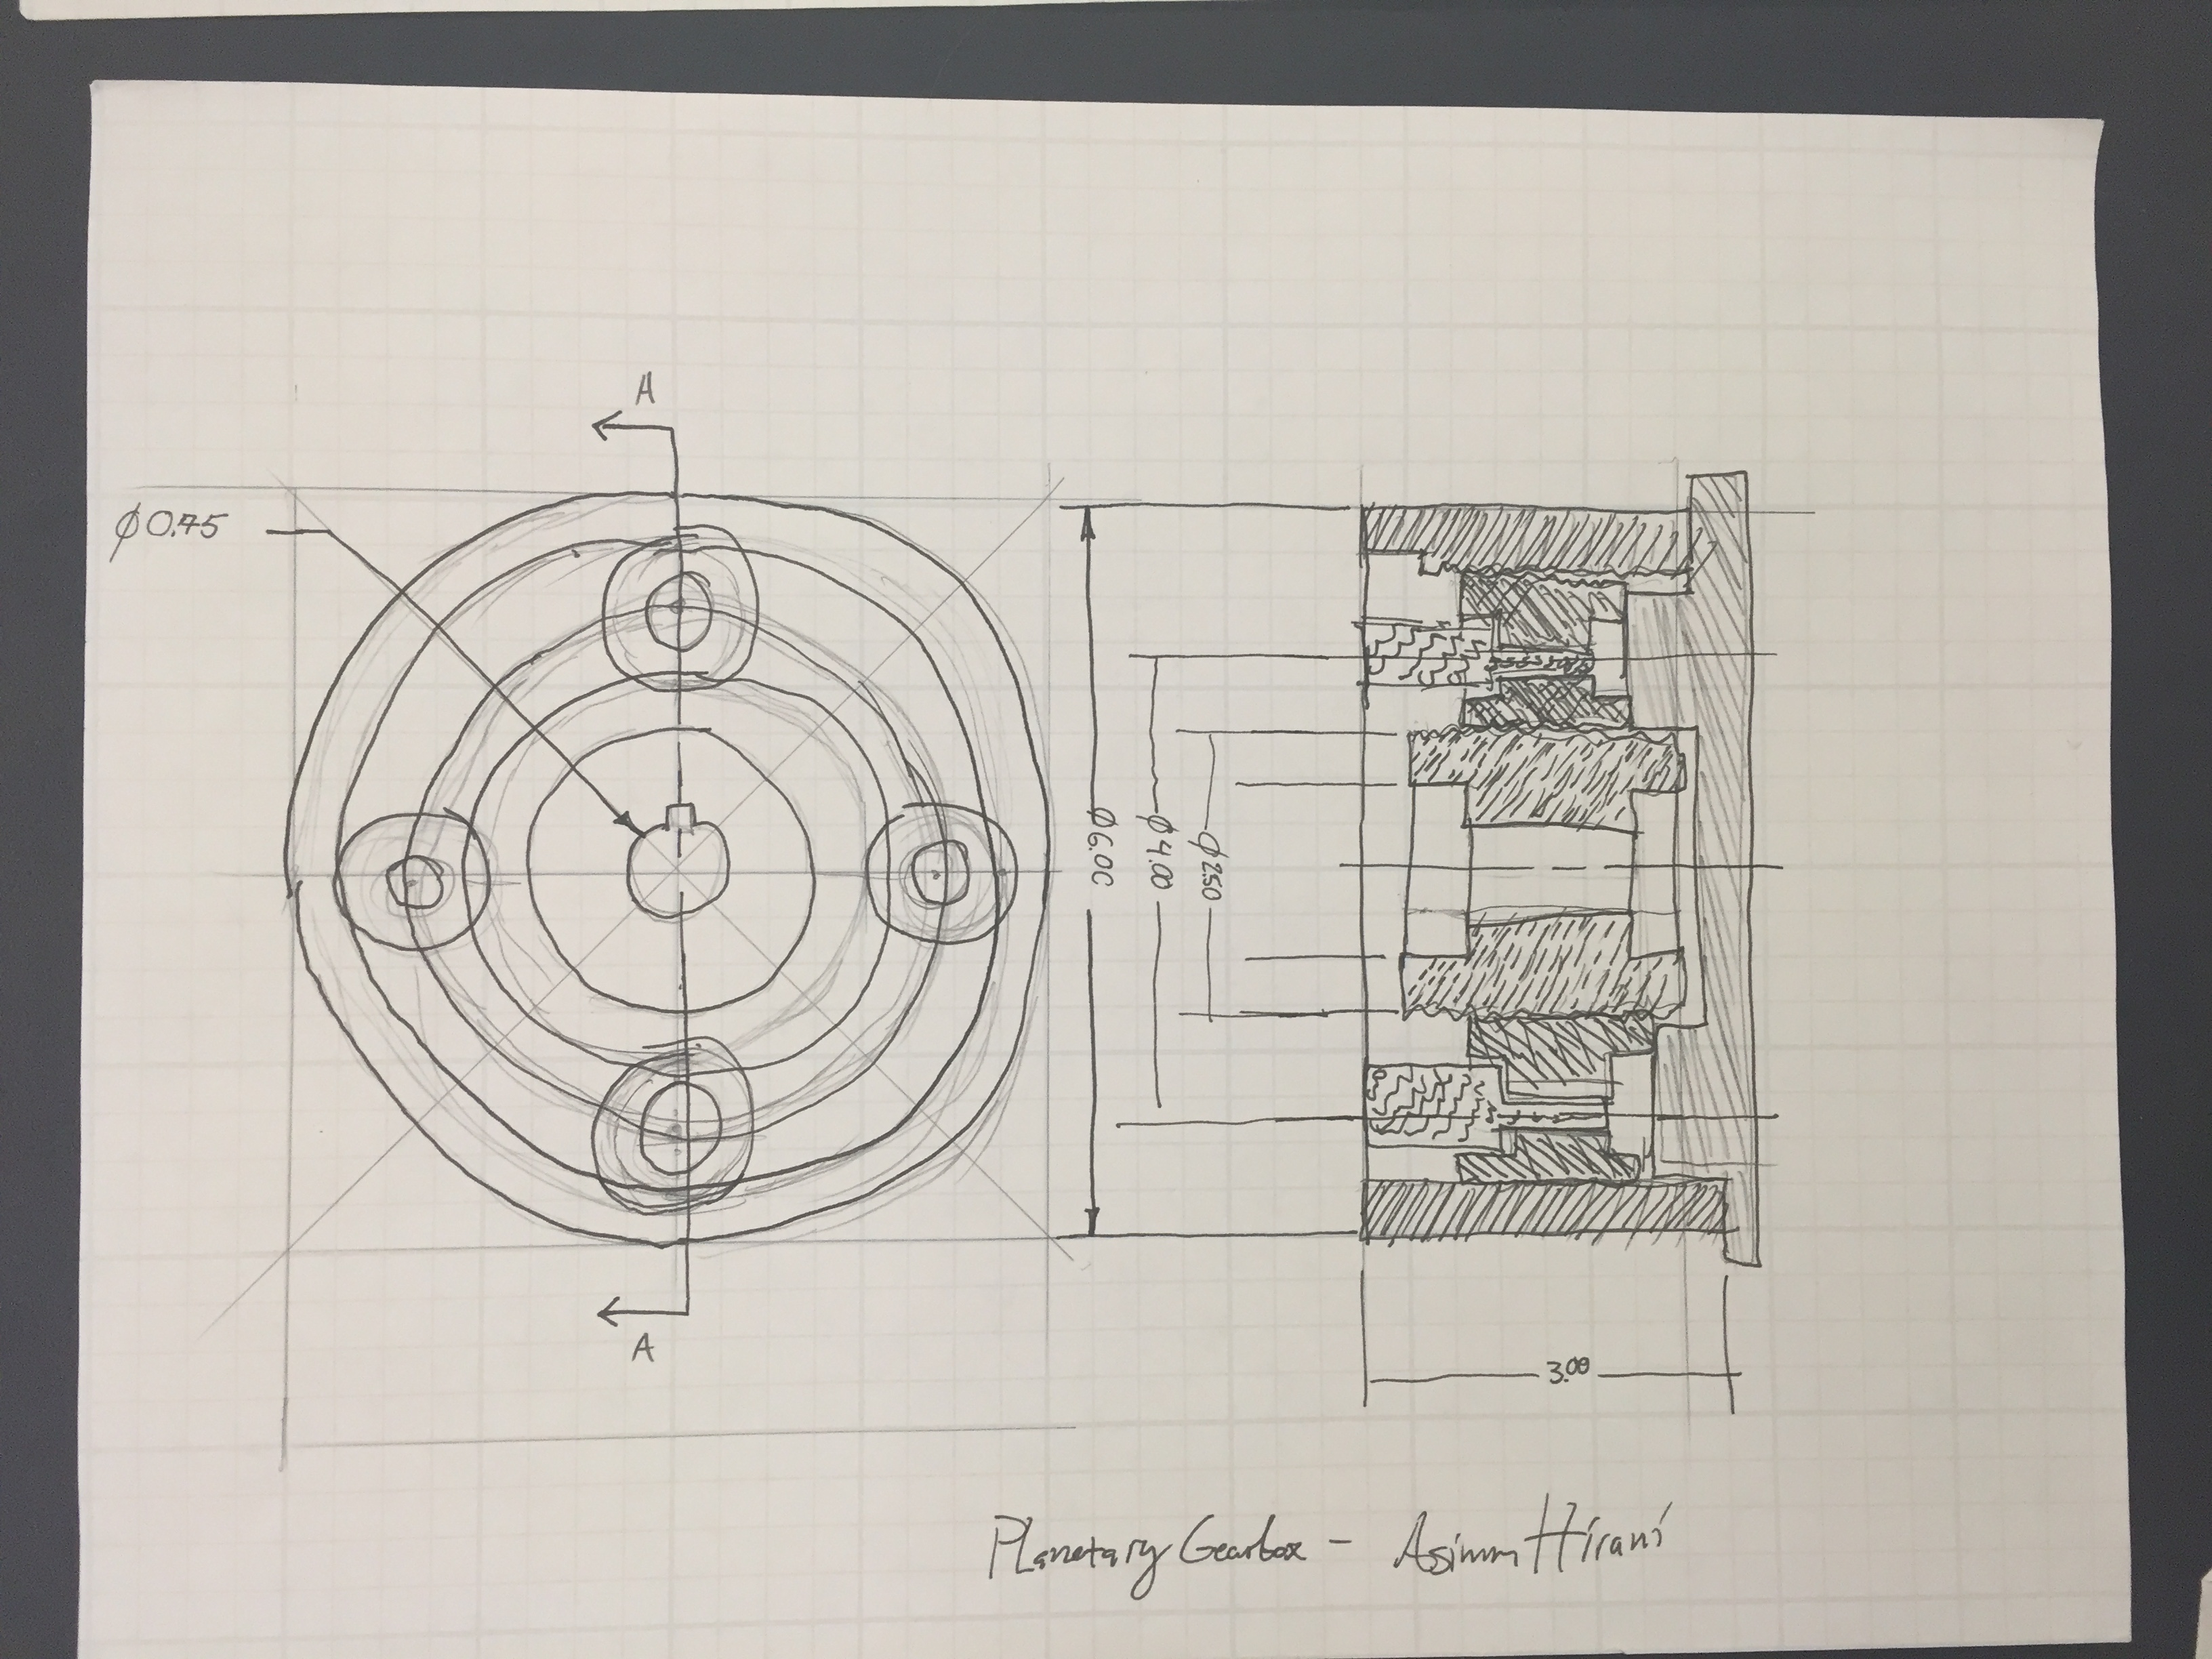 A
⌀0.75
⌀6.00
⌀4.00
⌀2.50
A
3.00
Planetary Gearbox - Asimm Hirani